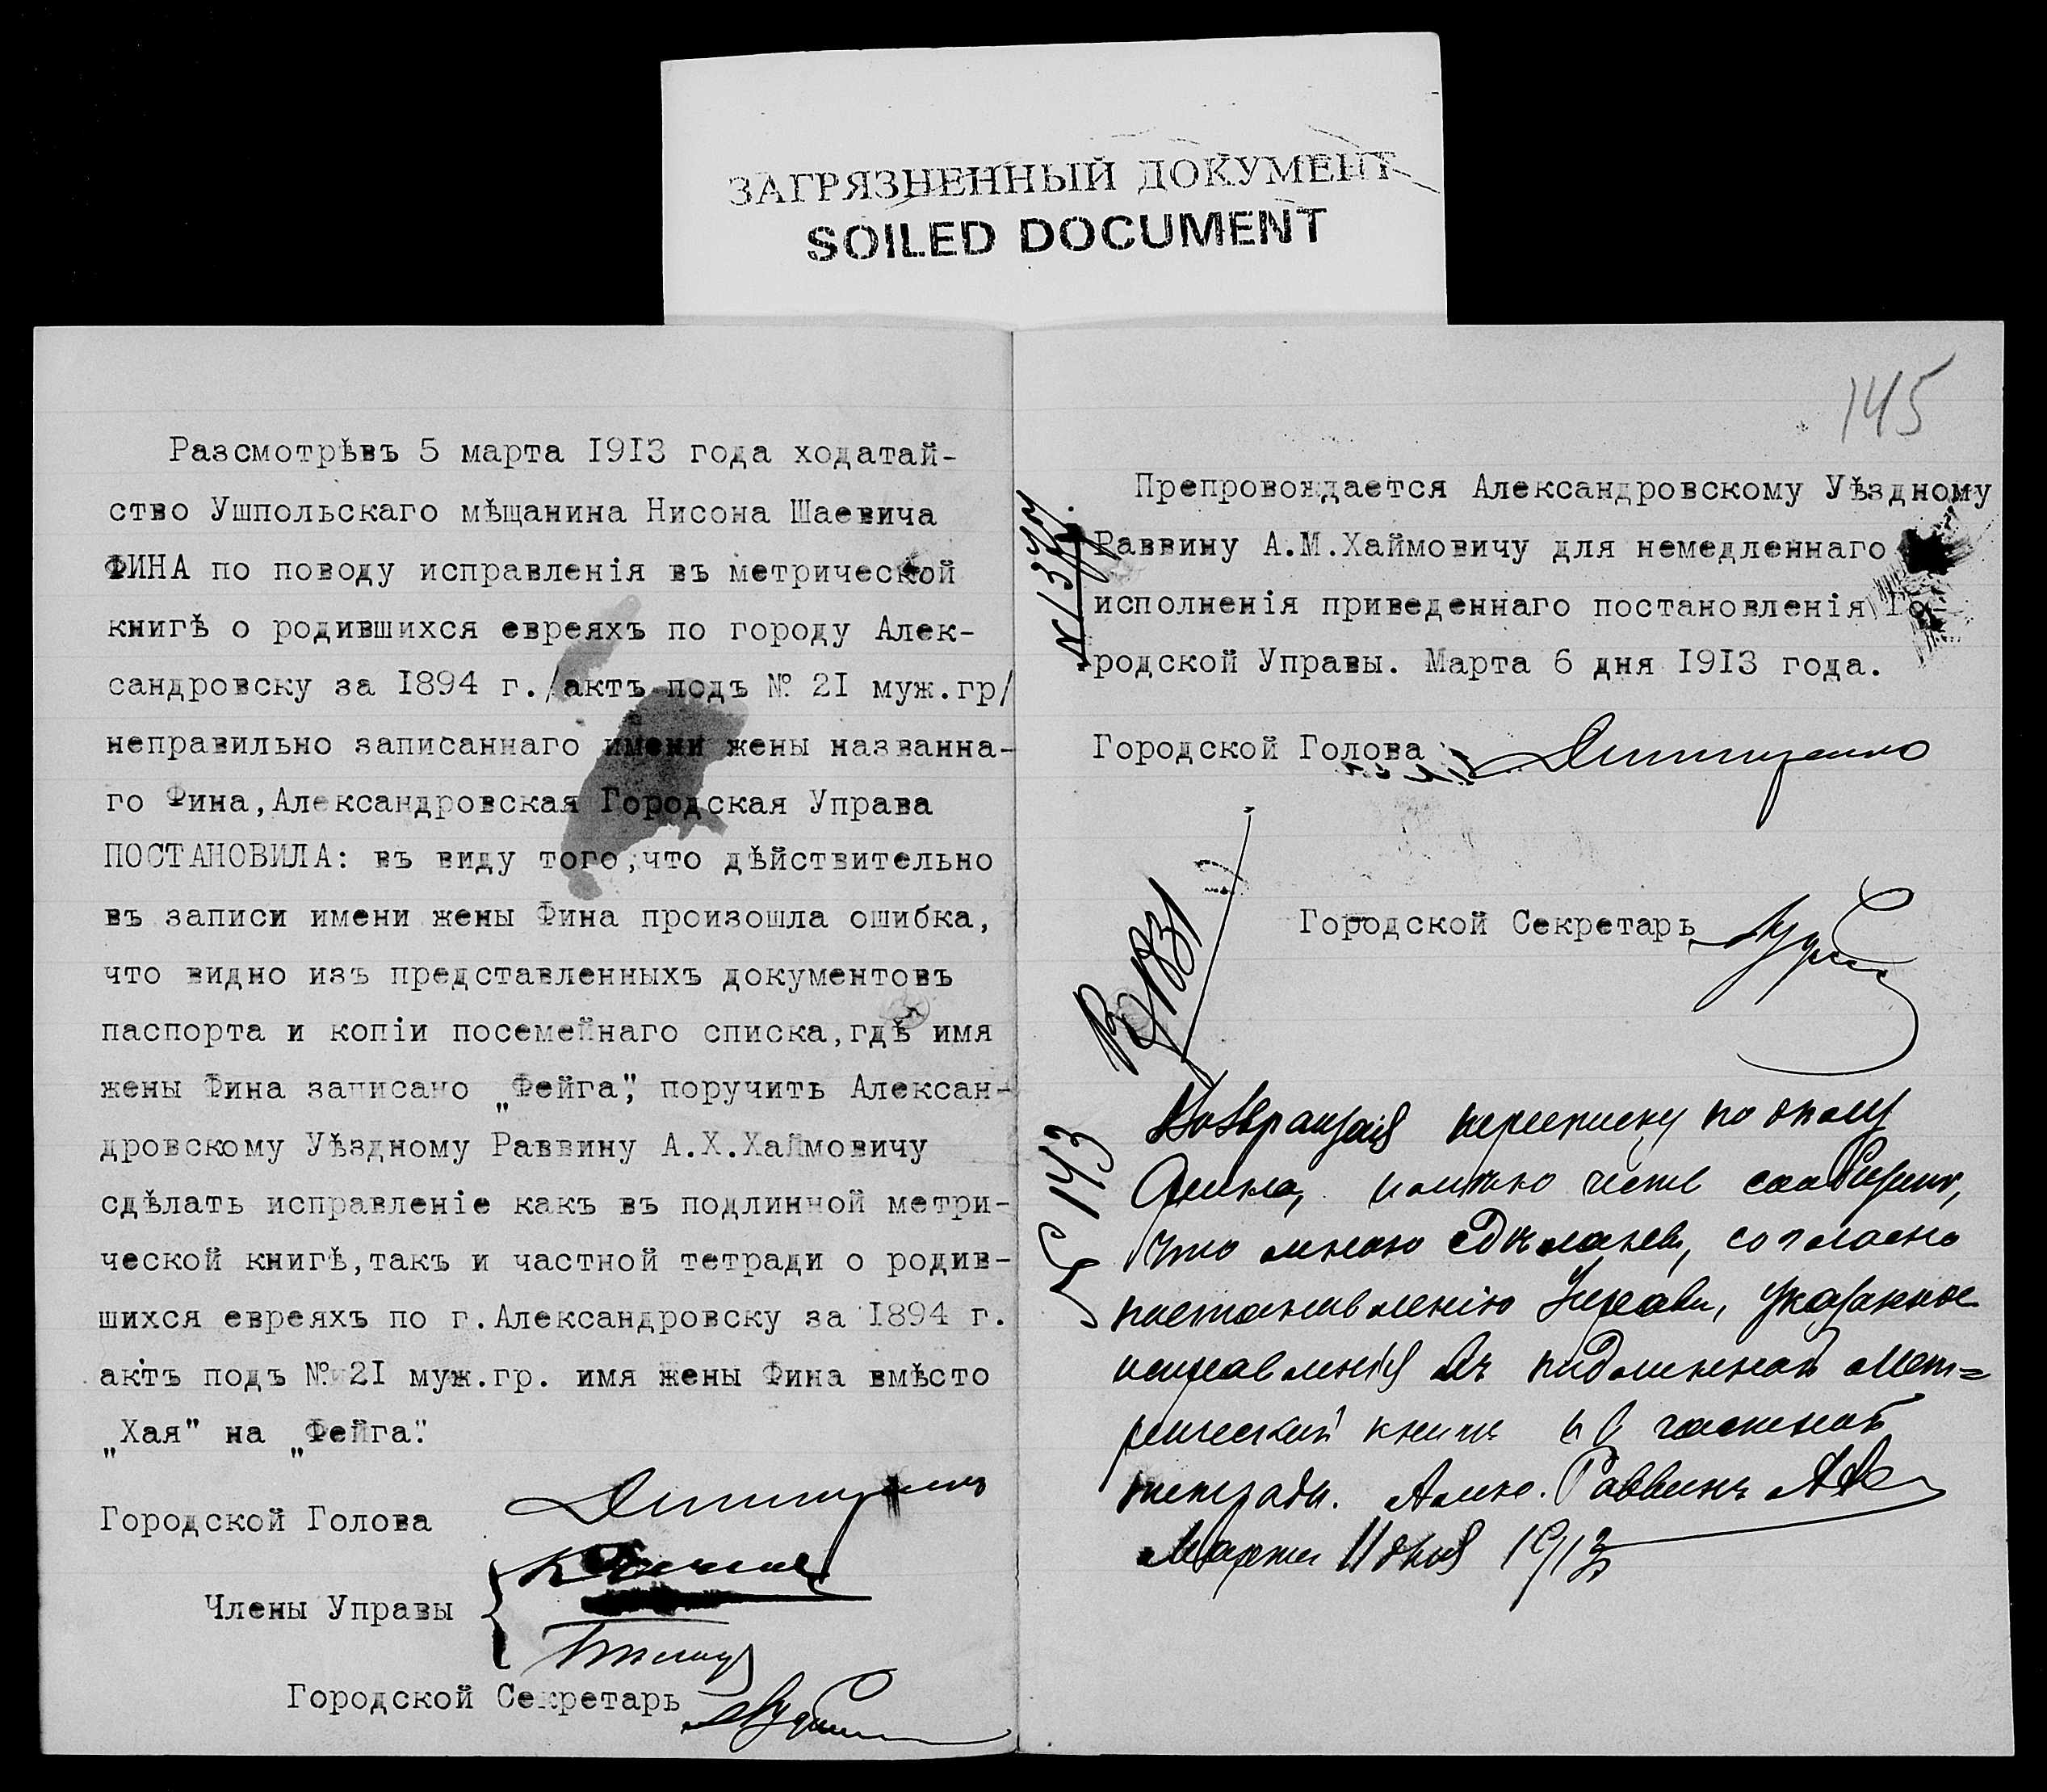 ЗАГРЯЗНЕННЫЙ ДОКУМЕНТ
SOILED DOCUMENT
Разсмотрѣвъ 5 марта 1913 года ходатай-
ство Ушпольскаго мѣщанина Нисона Шаевича
ФИНА по поводу исправленія въ метрической
книгѣ о родившихся евреяхъ по городу Алек-
сандровску за 1894 г./актъ подъ № 21 муж.гр/
неправильно записаннаго имени жены названна-
го Фина,Александровская Городская Управа
ПОСТАНОВИЛА: въ виду того,что дѣйствительно
въ записи имени жены Фина произошла ошибка,
что видно изъ представленныхъ документовъ
паспорта и копіи посемейнаго списка,гдѣ имя
жены Фина записано „Фейга", поручить Алексан-
дровскому Уѣздному Раввину А.Х.Хаймовичу
сдѣлать исправленіе какъ въ подлинной метри-
ческой книгѣ,такъ и частной тетради о родив-
шихся евреяхъ по г.Александровску за 1894 г.
актъ подъ № 21 муж.гр. имя жены Фина вмѣсто
„Хая" на „Фейга".
Городской Голова
Члены Управы
Городской Секретарь
145
Препровождается Александровскому Уѣздному
Раввину А.М.Хаймовичу для немедленнаго
исполненія приведеннаго постановленія Го-
родской Управы. Марта 6 дня 1913 года.
№ 1377.
Городской Голова
Городской Секретарь
1831
№ 143
Возвращая переписку по дѣлу
Фина, имѣю честь сообщить,
что мною сдѣланы, согласно
постановленію Управы, указанное
исправленія въ подлинной мет=
рической книгѣ и в частной
тетради. Раввинъ
Марта 11 дня 1913